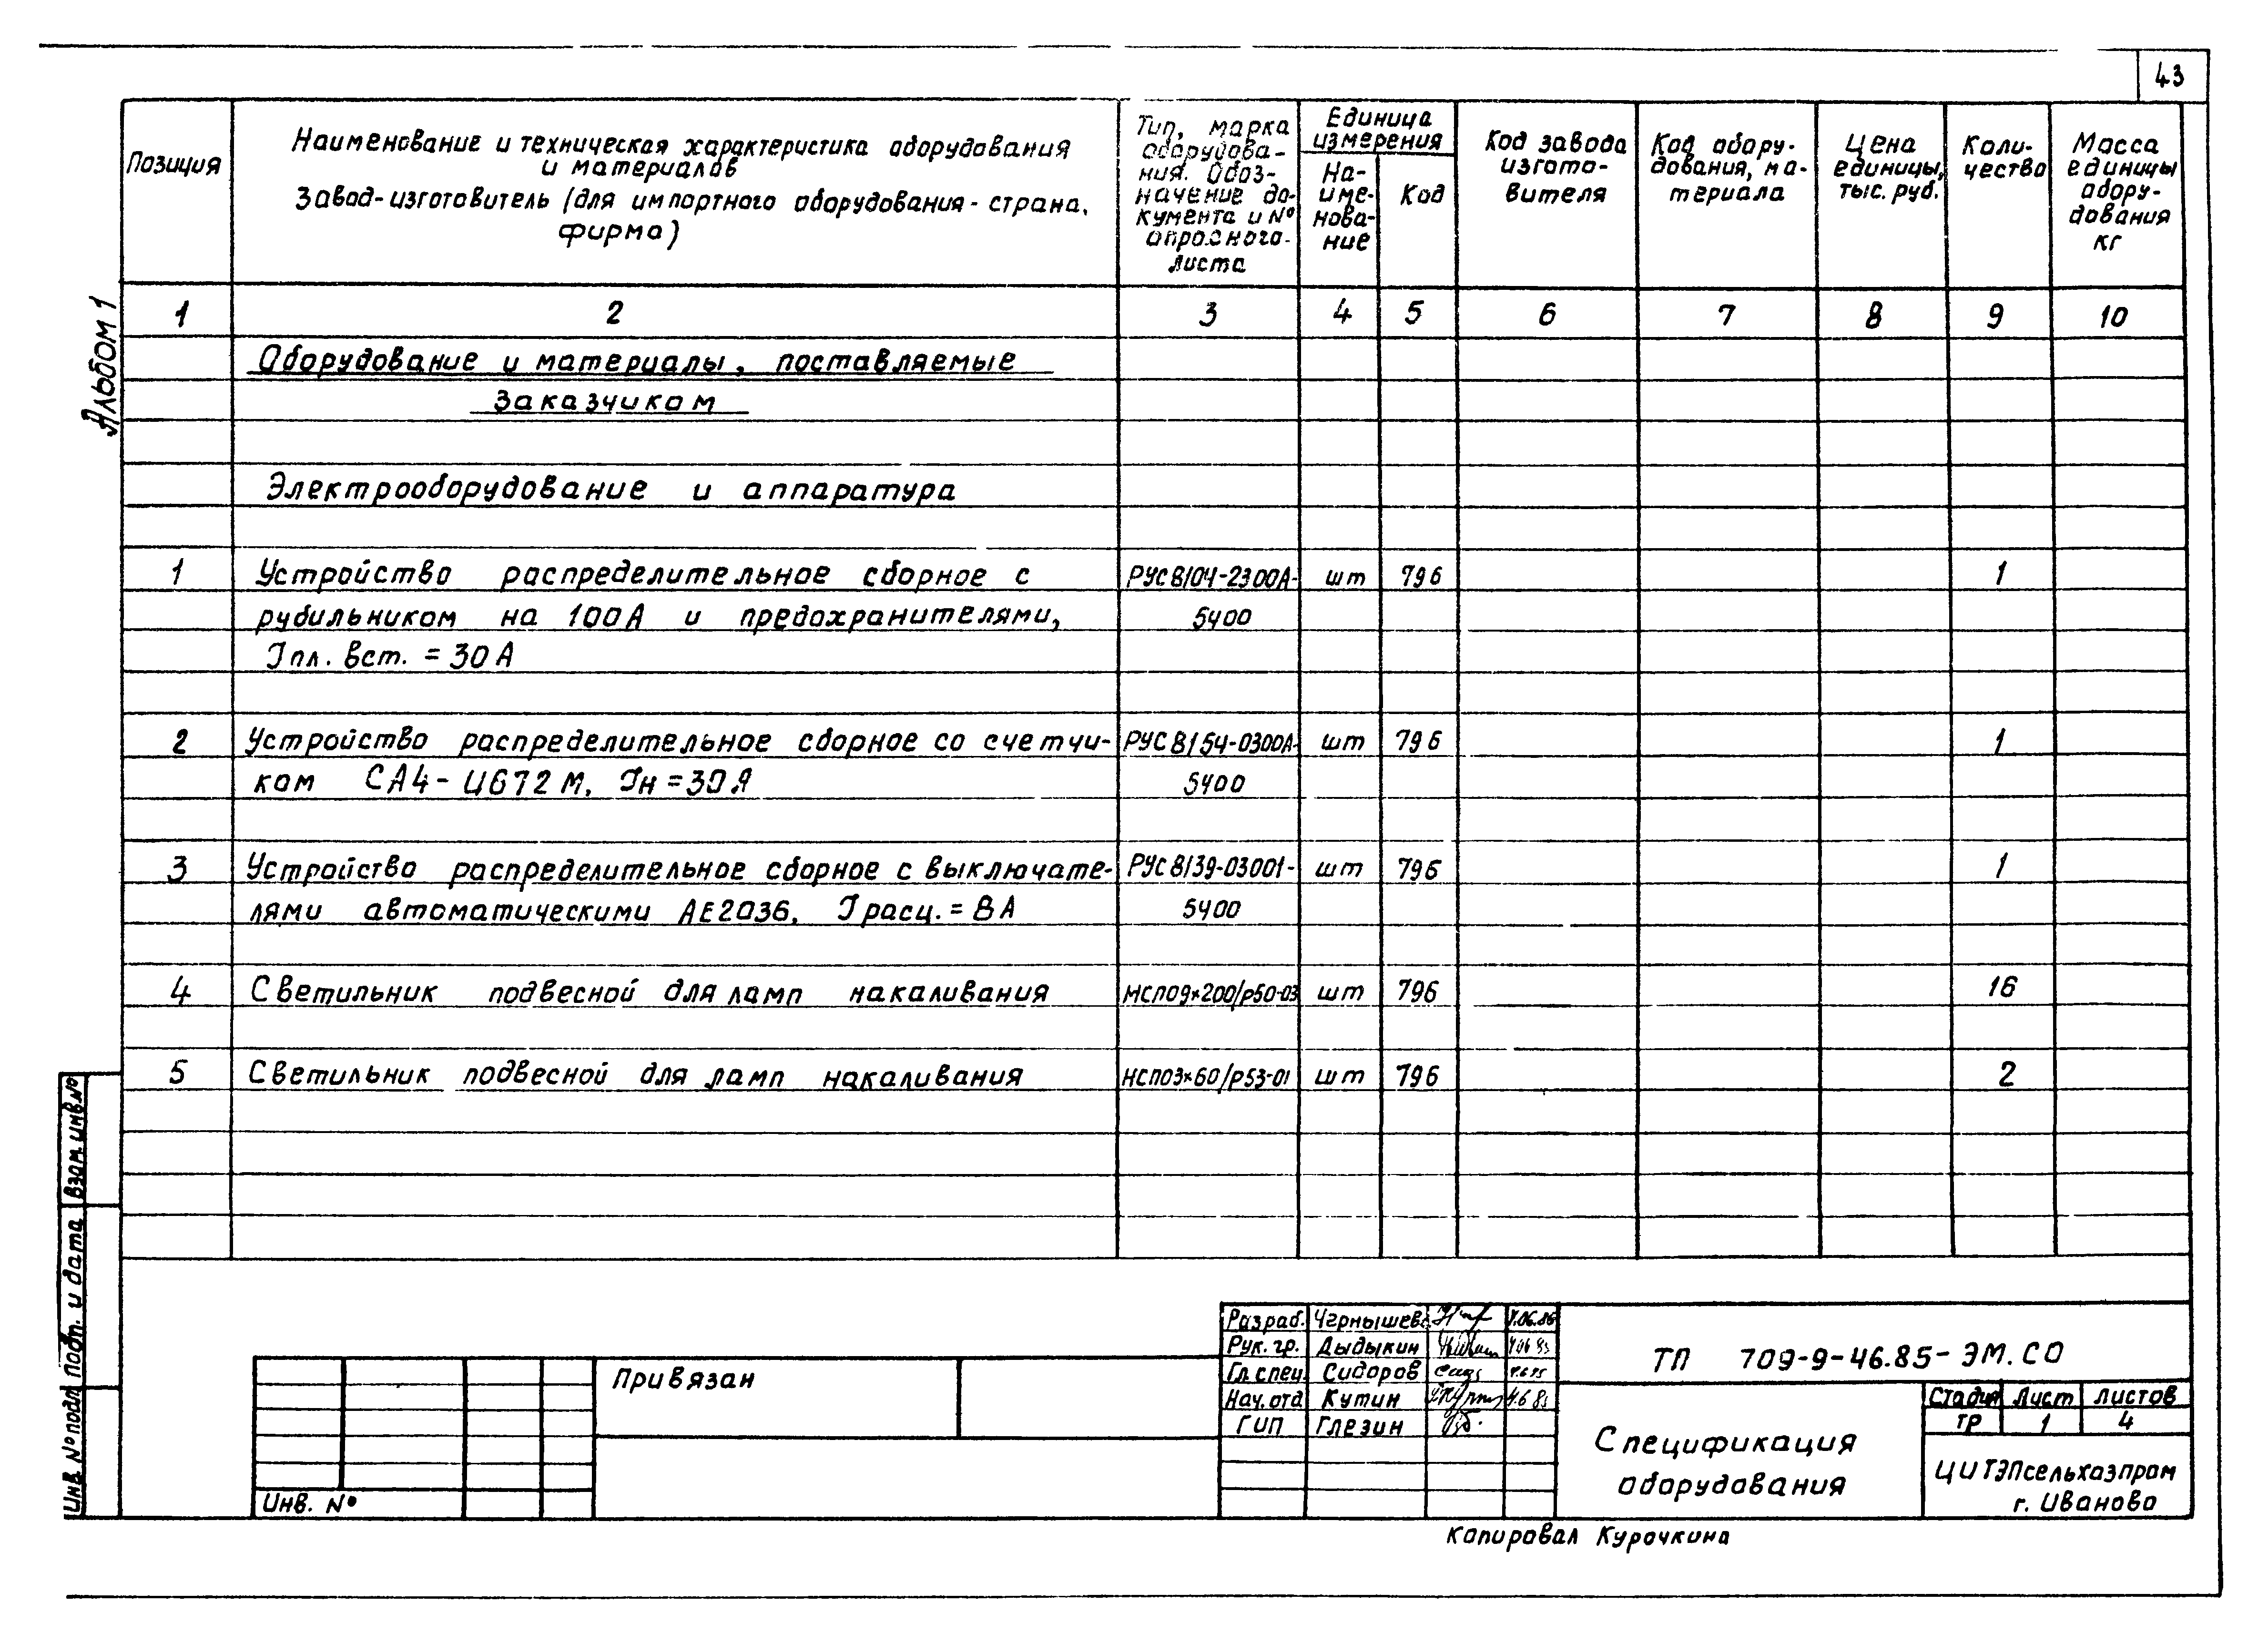 43
Альбом 1
Позиция
Наименование и техническая характеристика оборудования
и материалов
Завод-изготовитель (для импортного оборудования - страна,
фирма)
Тип, марка
оборудова-
ния. Обоз-
начение до-
кумента и №
опросного
листа
Единица
измерения
На-
име-
нова-
ние
Код
Код завода
изгото-
вителя
Код обору-
дования, ма-
териала
Цена
единицы,
тыс. руб.
Коли-
чество
Масса
единицы
обору-
дования
кг
1 2 3 4 5 6 7 8 9 10
Оборудование и материалы, поставляемые
Заказчиком
Электрооборудование и аппаратура
1 Устройство распределительное сборное с РУС8104-2300А- шт 796 1
рубильником на 100А и предохранителями, 5400
Iпл. вст. = 30А
2 Устройство распределительное сборное со счетчи- РУС8154-0300А- шт 796 1
ком СА4-И672М, Iн = 30А 5400
3 Устройство распределительное сборное с выключате- РУС8139-03001- шт 796 1
лями автоматическими АЕ2036, Iрасц. = 8А 5400
4 Светильник подвесной для ламп накаливания НСП09×200/Р50-03 шт 796 16
5 Светильник подвесной для ламп накаливания НСП03×60/Р53-01 шт 796 2
Взам инв. №
Подп. и дата
Инв. № подл
Привязан
Инв. №
Разраб. Чернышева
Рук. гр. Дыдыкин
Гл. спец. Сидоров
Нач. отд Кутин
ГИП Глезин
ТП 709-9-46.85-ЭМ.СО
Спецификация
оборудования
Стадия Лист Листов
ТР 1 4
ЦИТЭПсельхозпром
г. Иваново
Копировал Курочкина